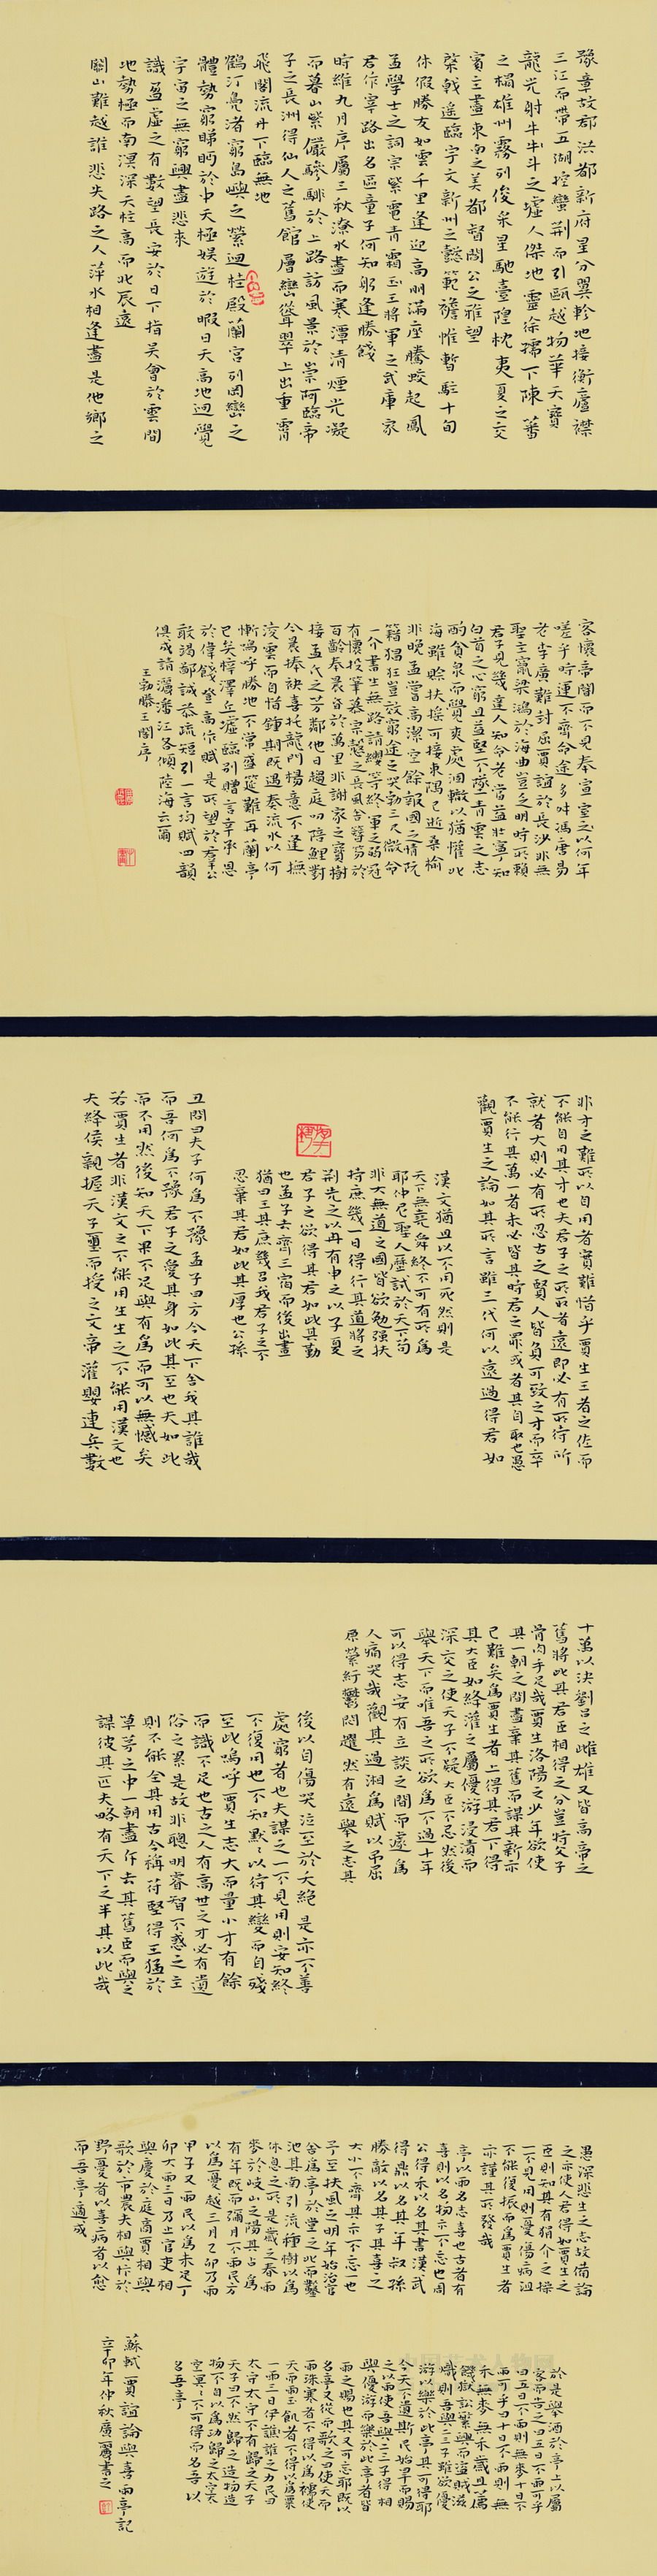 豫章故郡洪都新府星分翼軫地接衡廬襟
三江而帶五湖控蠻荊而引甌越物華天寶
龍光射牛斗之墟人傑地靈徐孺下陳蕃
之榻雄州霧列俊采星馳臺隍枕夷夏之交
賓主盡東南之美都督閻公之雅望
棨戟遙臨宇文新州之懿範襜帷暫駐十旬
休假勝友如雲千里逢迎高朋滿座騰蛟起鳳
孟學士之詞宗紫電青霜王將軍之武庫家
君作宰路出名區童子何知躬逢勝餞
時維九月序屬三秋潦水盡而寒潭清煙光凝
而暮山紫儼驂騑於上路訪風景於崇阿臨帝
子之長洲得仙人之舊館層巒聳翠上出重霄
飛閣流丹下臨無地
鶴汀鳧渚窮島嶼之縈迴桂殿蘭宮列岡巒之
體勢窮睇眄於中天極娛遊於暇日天高地迥覺
宇宙之無窮興盡悲來
識盈虛之有數望長安於日下指吳會於雲間
地勢極而南溟深天柱高而北辰遠
關山難越誰悲失路之人萍水相逢盡是他鄉之
客懷帝閽而不見奉宣室以何年
嗟乎時運不齊命途多舛馮唐易
老李廣難封屈賈誼於長沙非無
聖主竄梁鴻於海曲豈乏明時所賴
君子見幾達人知命老當益壯寧知
白首之心窮且益堅不墜青雲之志
酌貪泉而覺爽處涸轍以猶懽北
海雖賒扶搖可接東隅已逝桑榆
非晚孟嘗高潔空餘報國之情阮
籍猖狂豈效窮途之哭勃三尺微命
一介書生無路請纓等終軍之弱冠
有懷投筆慕宗愨之長風舍簪笏於
百齡奉晨昏於萬里非謝家之寶樹
接孟氏之芳鄰他日趨庭叨陪鯉對
今晨捧袂喜托龍門楊意不逢撫
凌雲而自惜鍾期既遇奏流水以何
慚嗚呼勝地不常盛筵難再蘭亭
已矣梓澤丘墟臨別贈言幸承恩
於偉餞登高作賦是所望於群公
敢竭鄙誠恭疏短引一言均賦四韻
俱成請灑潘江各傾陸海云爾
王勃滕王閣序
非才之難所以自用者實難惜乎賈生王者之佐而
不能自用其才也夫君子之所取者遠即必有所待所
就者大則必有所忍古之賢人皆負可致之才而卒
不能行其萬一者未必皆其時君之罪或者其自取也愚
觀賈生之論如其所言雖三代何以遠過得君如
漢文猶且以不用死然則是
天下無堯舜終不可有所為
耶仲尼聖人歷試於天下苟
非大無道之國皆欲勉強扶
持庶幾一日得行其道將之
荊先之以冉有申之以子夏
君子之欲得其君如此其勤
也孟子去齊三宿而後出晝
猶曰王其庶幾召我君子之不
忍棄其君如此其厚也公孫
丑問曰夫子何為不豫孟子曰方今天下舍我其誰哉
而吾何為不豫君子之愛其身如此其至也夫如此
而不用然後知天下果不足與有為而可以無憾矣
若賈生者非漢文之不能用生生之不能用漢文也
夫絳侯親握天子璽而授之文帝灌嬰連兵數
十萬以決劉呂之雌雄又皆高帝之
舊將此其君臣相得之分豈特父子
骨肉手足哉賈生洛陽之少年欲使
其一朝之間盡棄其舊而謀其新亦
已難矣為賈生者上得其君下得
其大臣如絳灌之屬優游浸漬而
深交之使天子不疑大臣不忌然後
舉天下而唯吾之所欲為不過十年
可以得志安有立談之間而遽為
人痛哭哉觀其過湘為賦以弔屈
原縈紆鬱悶趯然有遠舉之志其
後以自傷哭泣至於夭絕是亦不善
處窮者也夫謀之一不見用則安知終
不復用也不知默默以待其變而自殘
至此嗚呼賈生志大而量小才有餘
而識不足也古之人有高世之才必有遺
俗之累是故非聰明睿智不惑之主
則不能全其用古今稱苻堅得王猛於
草茅之中一朝盡斥去其舊臣而與之
謀彼其匹夫略有天下之半其以此哉
愚深悲生之志故備論
之亦使人君得如賈生之
臣則知其有狷介之操
一不見用則憂傷病沮
不能復振而為賈生者
亦謹其所發哉
亭以雨名志喜也古者有
喜則以名物示不忘也周
公得禾以名其書漢武
得鼎以名其年叔孫
勝敵以名其子其喜之
大小不齊其示不忘一也
予至扶風之明年始治官
舍為亭於堂之北而鑿
池其南引流種樹以為
休息之所是歲之春雨
麥於岐山之陽其占為
有年既而彌月不雨民方
以為憂越三月乙卯乃雨
甲子又雨民以為未足丁
卯大雨三日乃止官吏相
與慶於庭商賈相與
歌於市農夫相與忭於
野憂者以喜病者以愈
而吾亭適成
於是舉酒於亭上以屬
客而告之曰五日不雨可乎
曰五日不雨則無麥十日不
雨可乎曰十日不雨則無
禾無麥無禾歲且薦
饑獄訟繁興而盜賊滋
熾則吾與二三子雖欲優
游以樂於此亭其可得耶
今天不遺斯民始旱而賜
之以雨使吾與二三子得相
與優游而樂於此亭者皆
雨之賜也其又可忘耶既以
名亭又從而歌之曰使天而
雨珠寒者不得以為襦使
天而雨玉飢者不得以為粟
一雨三日伊誰之力民曰
太守太守不有歸之天子
天子曰不然歸之造物造
物不自以為功歸之太空太
空冥冥不可得而名吾以
名吾亭
蘇軾賈誼論與喜雨亭記
辛卯年仲秋廣麗書之